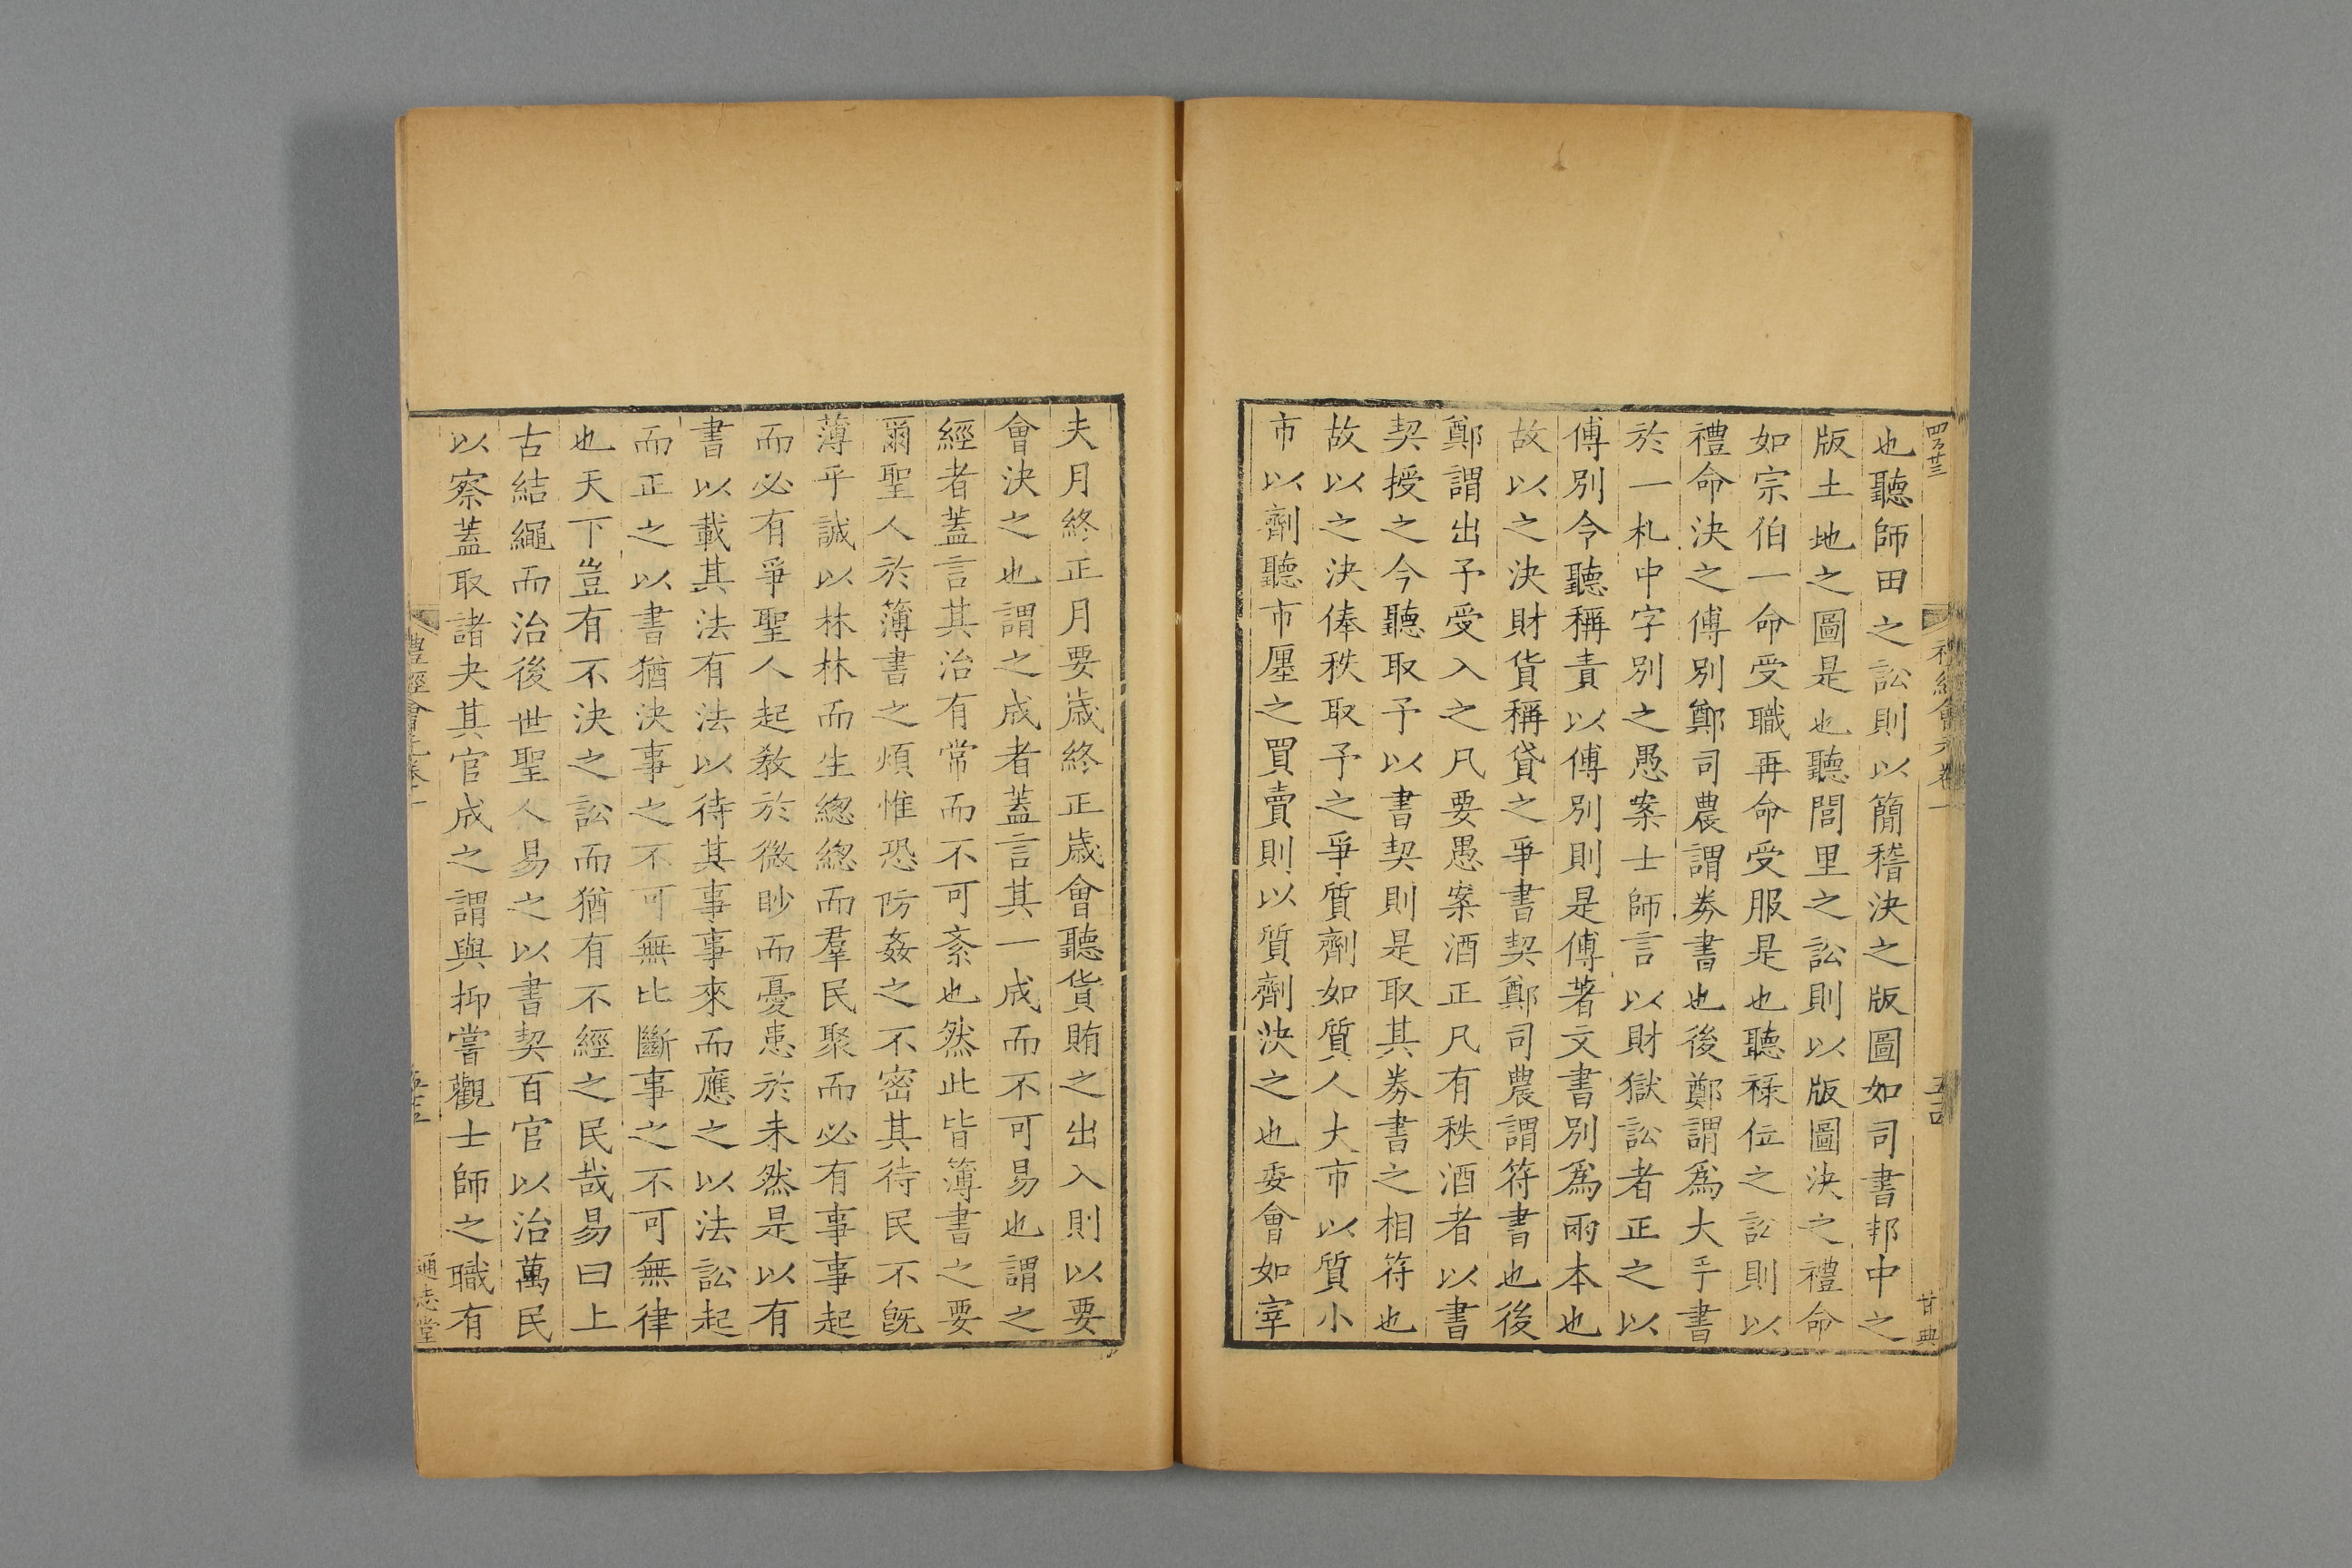 也聽師田之訟則以簡稽決之版圖如司書邦中之
版土地之圖是也聽閭里之訟則以版圖決之禮命
如宗伯一命受職再命受服是也聽祿位之訟則以
禮命決之傅別鄭司農謂券書也後鄭謂爲大手書
於一札中字別之愚案士師言以財獄訟者正之以
傅別令聽稱責以傅別則是傅著文書別爲兩本也
故以之決財貨稱貸之爭書契鄭司農謂符書也後
鄭謂出予受入之凡要愚案酒正凡有秩酒者以書
契授之今聽取予以書契則是取其券書之相符也
故以之決俸秩取予之爭質劑如質人大市以質小
市以劑聽市廛之買賣則以質劑決之也要會如宰
夫月終正月要歲終正歲會聽貨賄之出入則以要
會決之也謂之成者蓋言其一成而不可易也謂之
經者蓋言其治有常而不可紊也然此皆簿書之要
爾聖人於簿書之煩惟恐防姦之不密其待民不旣
薄乎誠以林林而生緫緫而羣民聚而必有事事起
而必有爭聖人起教於微眇而憂患於未然是以有
書以載其法有法以待其事事來而應之以法訟起
而正之以書猶決事之不可無比斷事之不可無律
也天下豈有不決之訟而猶有不經之民哉易曰上
古結繩而治後世聖人易之以書契百官以治萬民
以察蓋取諸夬其官成之謂與抑嘗觀士師之職有
禮經會元卷一
通志堂
四百廿三
禮經會元卷一
五四
甘典